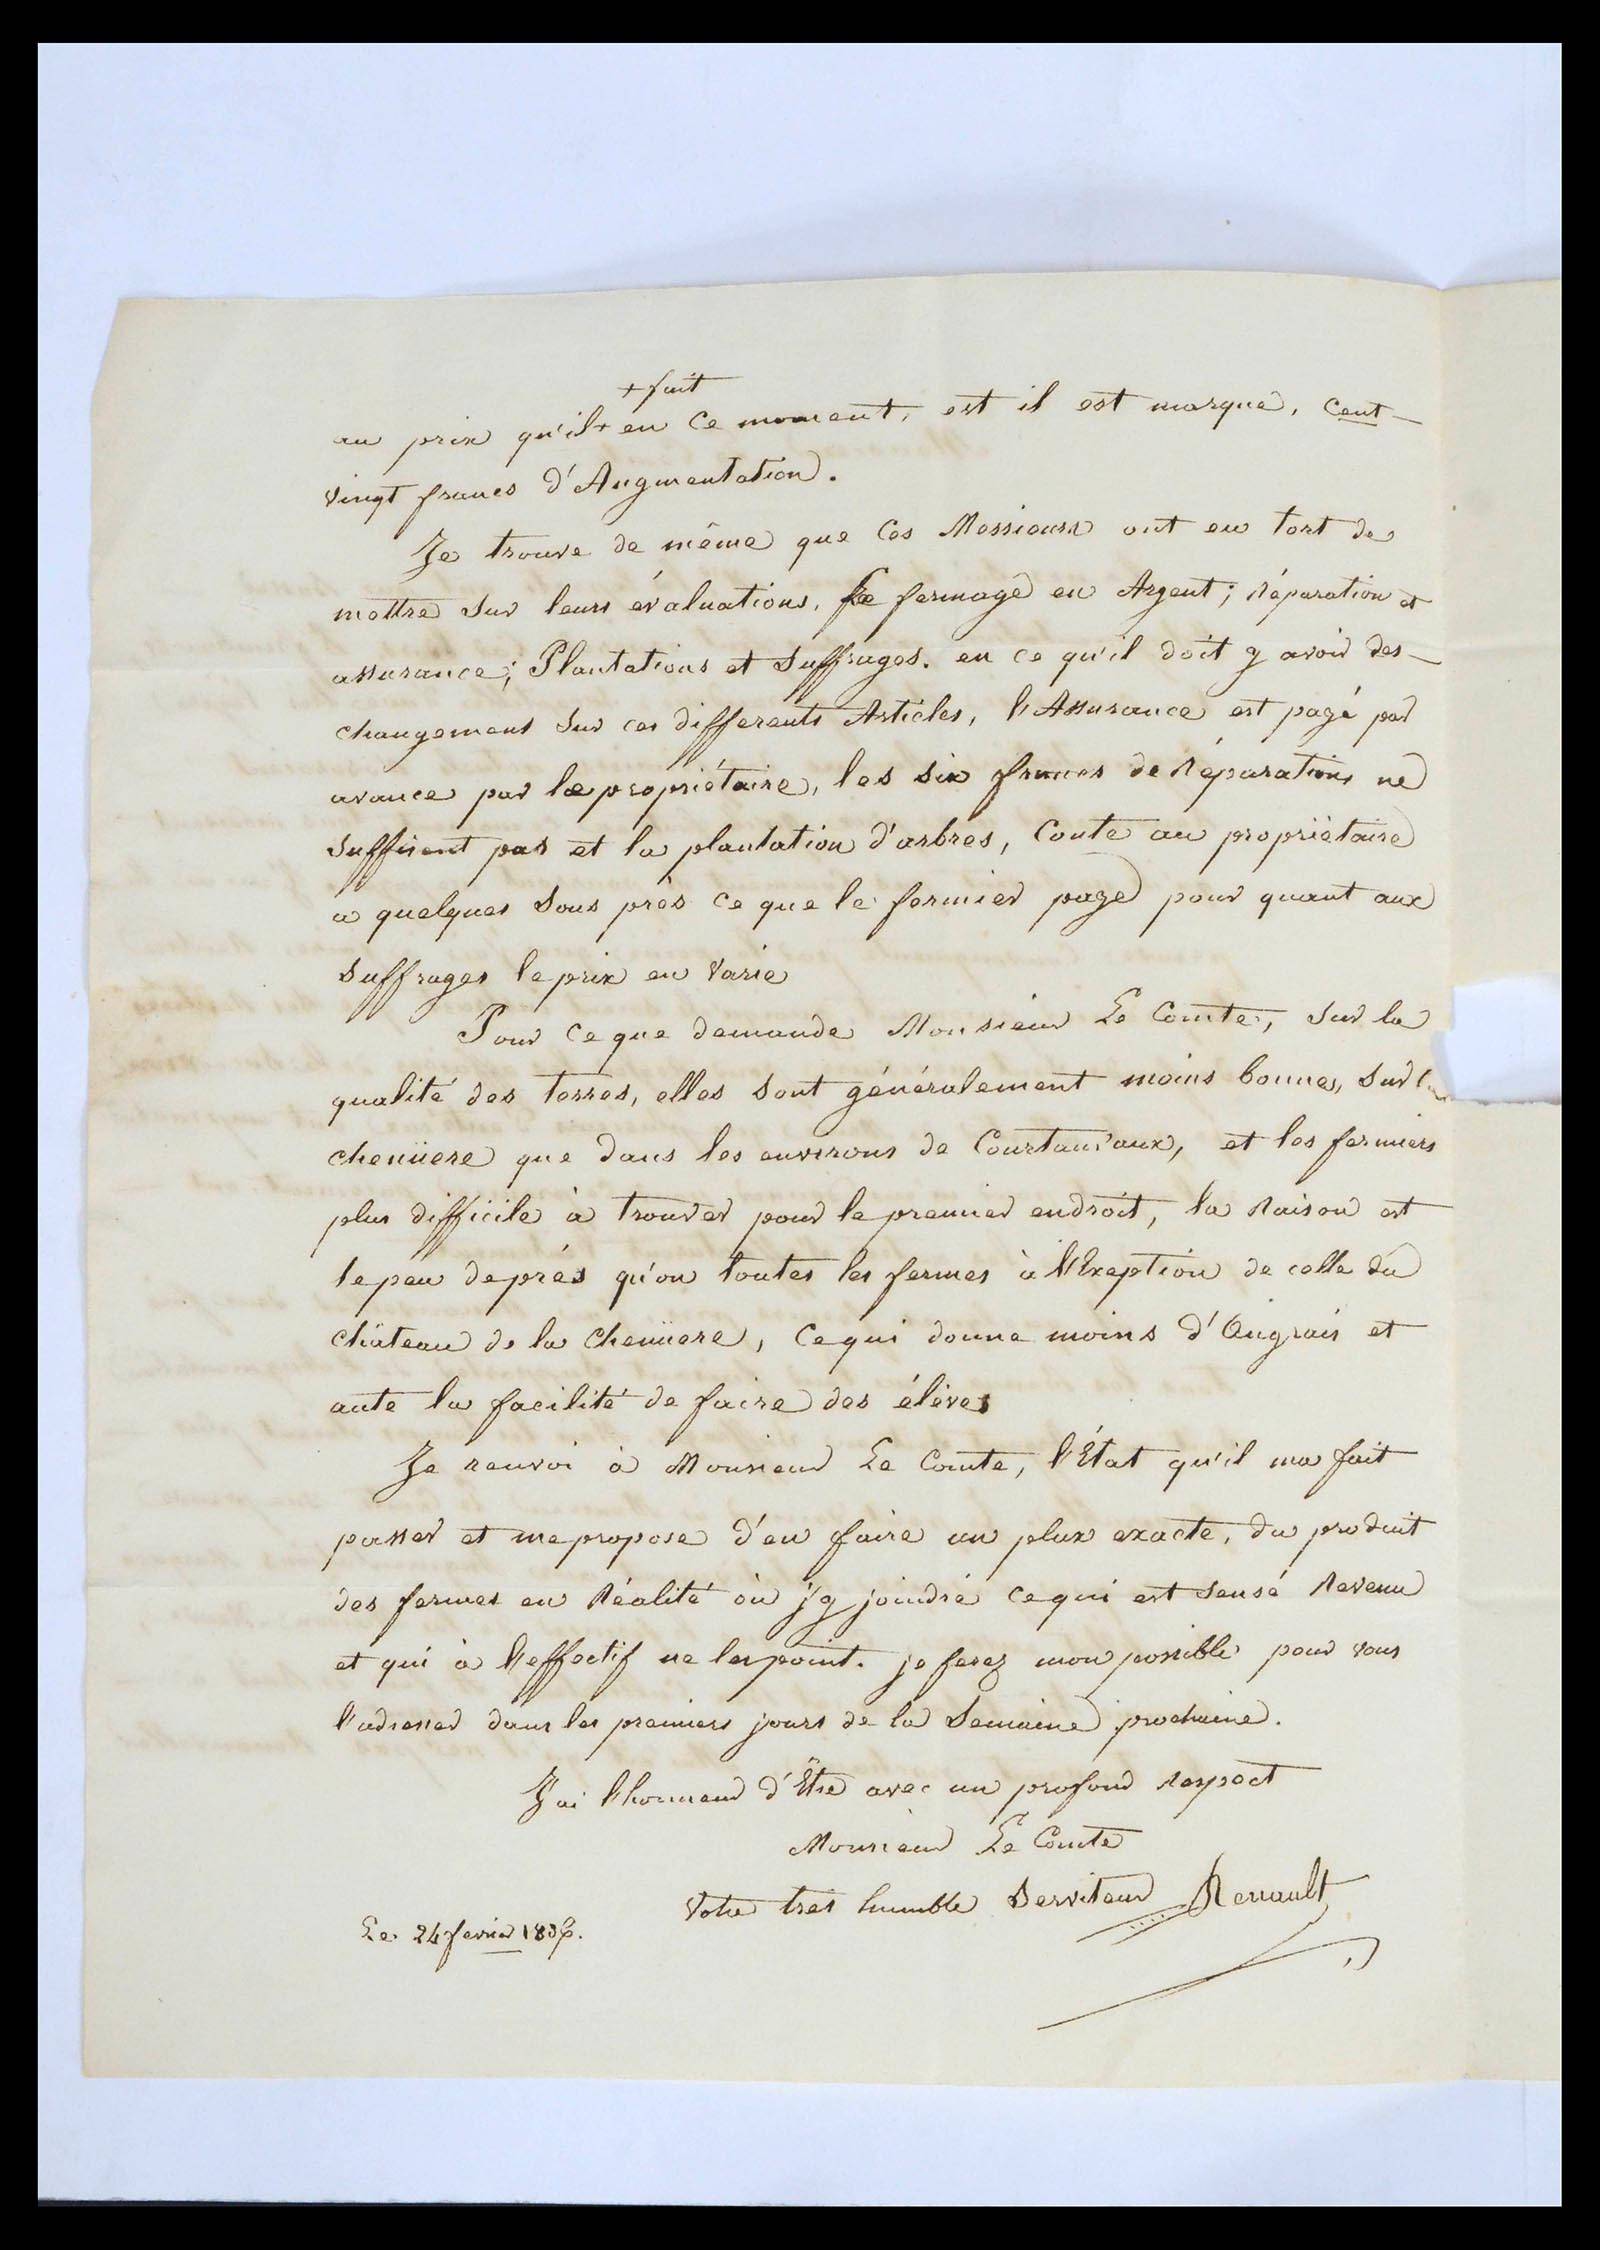 + fait
au prix qu'il + en ce moment, est il est marqué, cent-
vingt francs d'Augmentation.
Je trouve de même que ces Messieurs ont eu tort de
mettre sur leurs évaluations, le fermage en Argent; réparation et
assurance; Plantations et suffrages. en ce qu'il doit y avoir des
changemens sur ces differents Articles, l'Assurance est payé par
avance par le propriétaire, les six francs de Réparations ne
suffisent pas et la plantation d'arbres, Coute au propriètaire
a quelques sous près ce que le fermier paye pour quant aux
suffrages le prix en varie
Pour ce que demande Monsieur Le Comte, sur la
qualité des terres, elles sont généralement moins bonnes, sur
cheniiere que dans les environs de Courtanvaux, et les fermiers
plus difficile à trouver pour le premier endroit, la Raison est
le peu de prés qu'on toutes les fermes à l'Exeption de celle du
château de la Cheniiere, ce qui donne moins d'Engrais et
aute la facilité de faire des élèves
Je renvoi à Monsieur Le Comte, l'État qu'il ma fait
passer et me propose d'en faire un plux exacte, du produit
des fermes en Réalité où j'y joindré ce qui est sensé Revenu
et qui à l'effectif ne les point. je ferez mon possible pour vous
l'adresser dans les premiers jours de la Semaine prochaine.
J'ai l'honneur d'Être avec un profond Respect
Monsieur Le Comte
Votre très humble Serviteur Renault
Le 24 fevrier